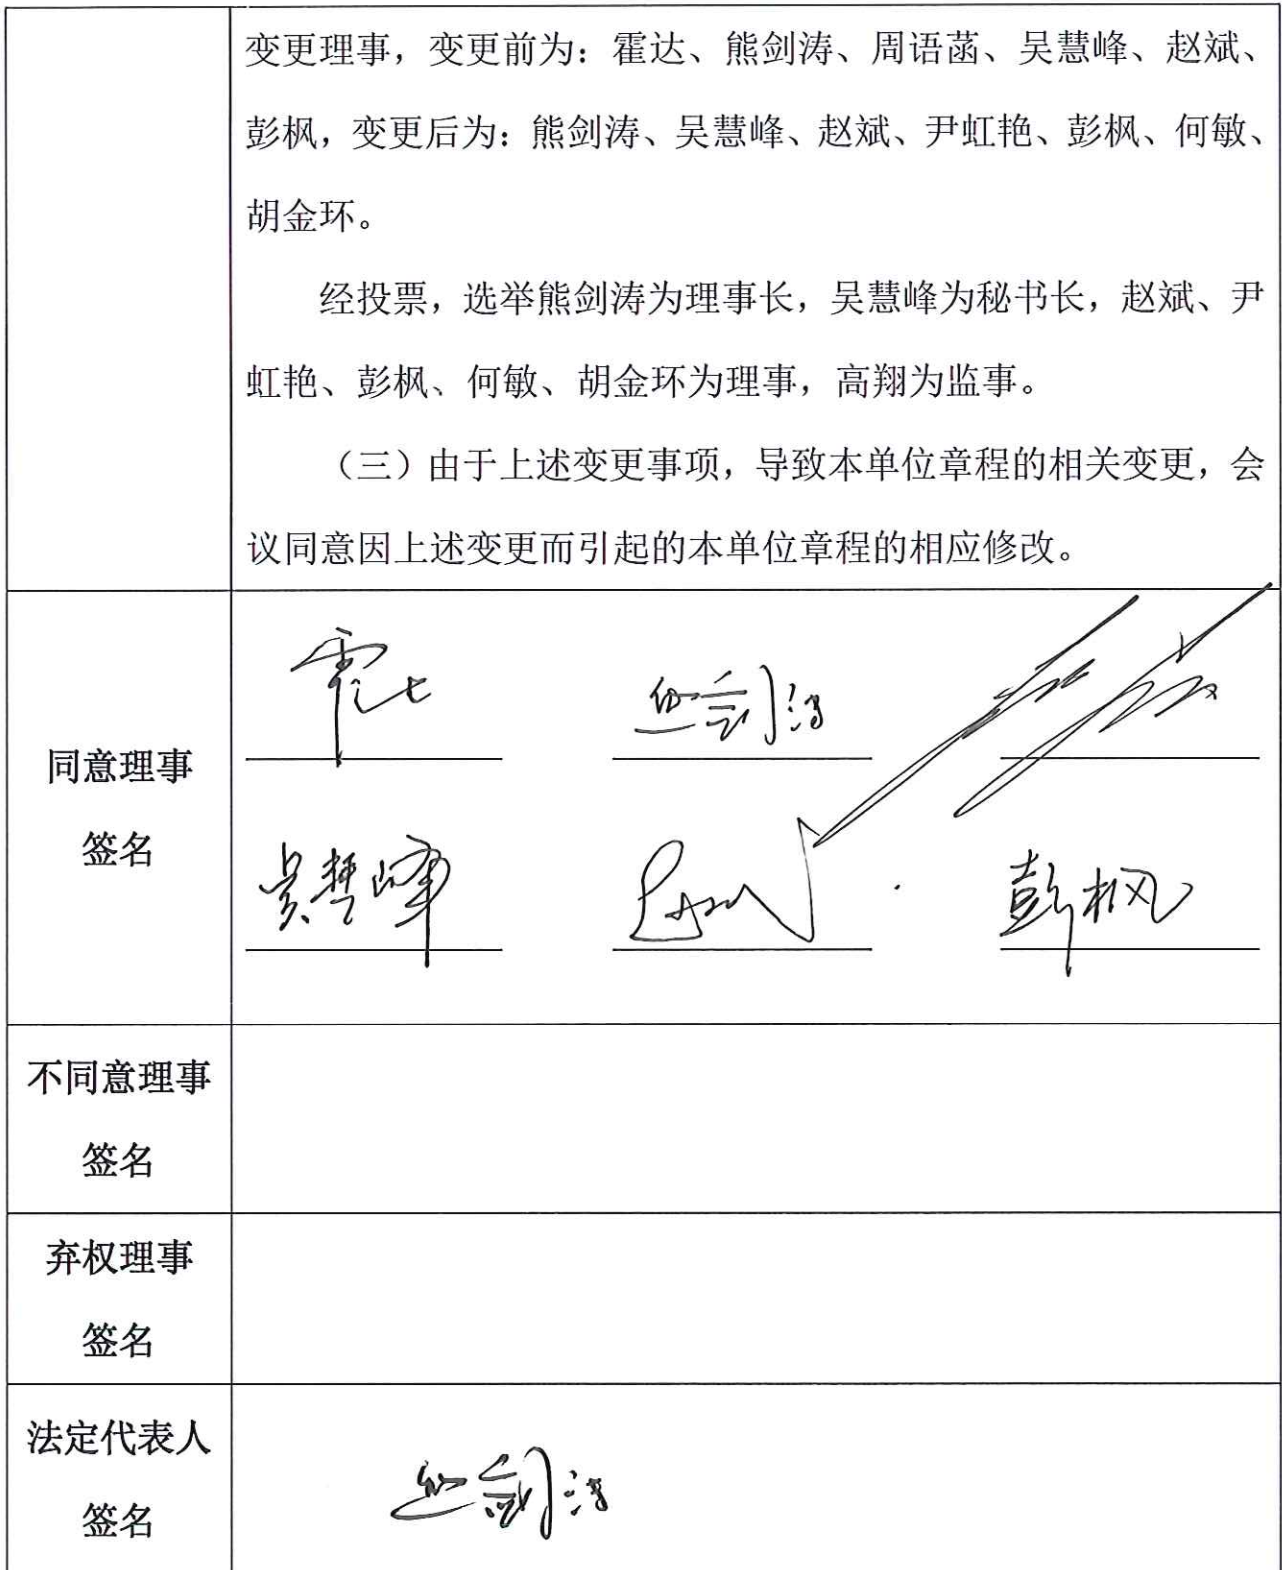 变更理事，变更前为：霍达、熊剑涛、周语菡、吴慧峰、赵斌、
彭枫，变更后为：熊剑涛、吴慧峰、赵斌、尹虹艳、彭枫、何敏、
胡金环。
经投票，选举熊剑涛为理事长，吴慧峰为秘书长，赵斌、尹
虹艳、彭枫、何敏、胡金环为理事，高翔为监事。
（三）由于上述变更事项，导致本单位章程的相关变更，会
议同意因上述变更而引起的本单位章程的相应修改。
同意理事
签名
熊剑涛
吴慧峰
彭枫
不同意理事
签名
弃权理事
签名
法定代表人
签名
熊剑涛